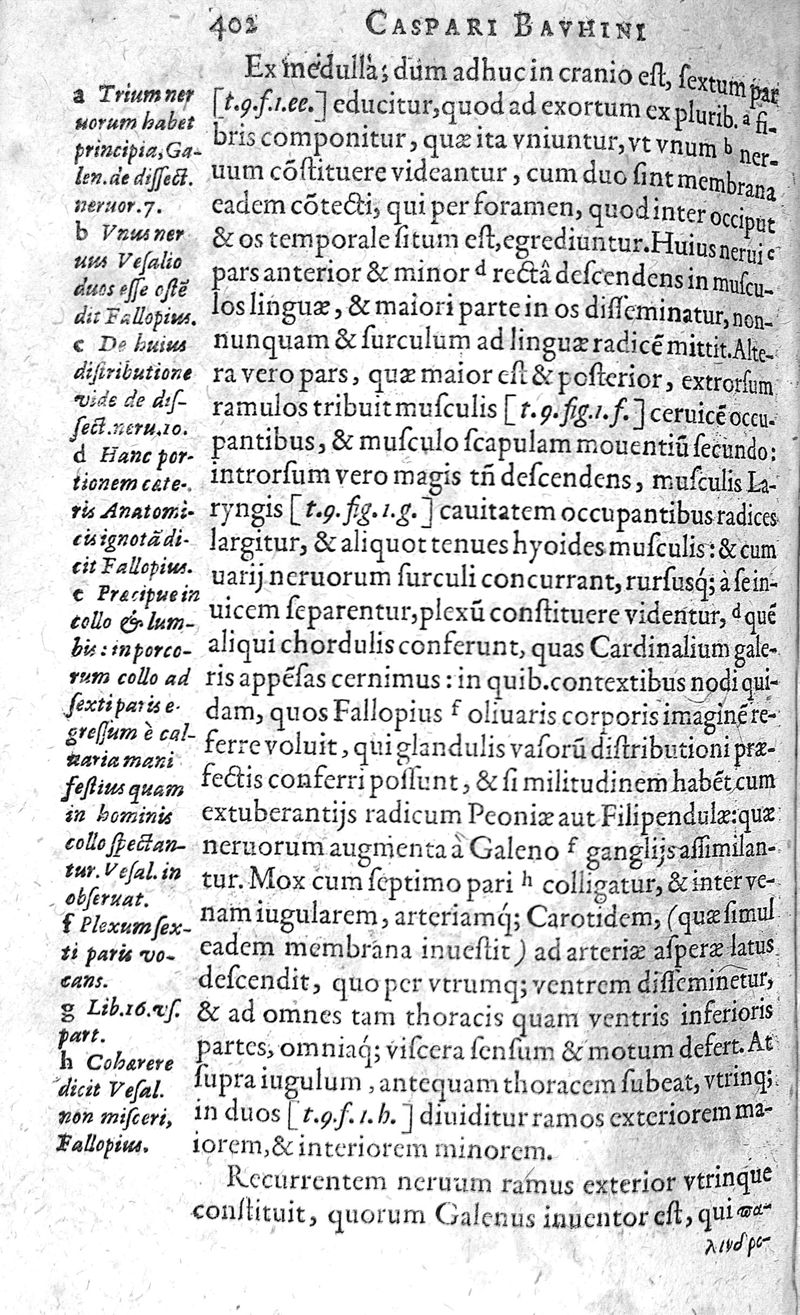 402 CASPARI BAVHINI
Ex medulla; dum adhuc in cranio est, sextum par
[t.9.f.1.ee.] educitur, quod ad exortum ex plurib. a fi-
bris componitur, quæ ita vniuntur, vt vnum b ner-
uum cõstituere videantur, cum duo sint membrana
eadem cõtecti, qui per foramen, quod inter occiput
& os temporale situm est, egrediuntur. Huius nerui c
pars anterior & minor d rectâ descendens in muscu-
los linguæ, & maiori parte in os disseminatur, non-
nunquam & surculum ad linguæ radicẽ mittit. Alte-
ra vero pars, quæ maior est & posterior, extrorsum
ramulos tribuit musculis [t.9.fig.1.f.] ceruicẽ occu-
pantibus, & musculo scapulam mouentiũ secundo:
introrsum vero magis tñ descendens, musculis La-
ryngis [t.9.fig.1.g.] cauitatem occupantibus radices
largitur, & aliquot tenues hyoides musculis: & cum
uarij neruorum surculi concurrant, rursusq́; à se in-
uicem separentur, plexũ constituere videntur, d quẽ
aliqui chordulis conferunt, quas Cardinalium gale-
ris appẽsas cernimus: in quib. contextibus nodi qui-
dam, quos Fallopius f oliuaris corporis imaginẽ re-
ferre voluit, qui glandulis vasorũ distributioni præ-
fectis conferri possunt, & si militudinem habẽt cum
extuberantijs radicum Peoniæ aut Filipendulæ: quæ
neruorum augmenta à Galeno f ganglijs assimilan-
tur. Mox cum septimo pari h colligatur, & inter ve-
nam iugularem, arteriamq́; Carotidem, (quæ simul
eadem membrana inuestit) ad arteriæ asperæ latus
descendit, quo per vtrumq; ventrem disseminetur,
& ad omnes tam thoracis quam ventris inferioris
partes, omniaq́; viscera sensum & motum defert. At
supra iugulum, antequam thoracem subeat, vtrinq;
in duos [t.9.f.1.h.] diuiditur ramos exteriorem ma-
iorem, & interiorem minorem.
Recurrentem neruum ramus exterior vtrinque
constituit, quorum Galenus inuentor est, qui πα-
λινδρο-
a Trium ner
uorum habet
principia, Ga-
len. de dissect.
neruor. 7.
b Vnus ner
uus Vesalio
duos esse ostẽ
dit Fallopius.
c De huius
distributione
vide de dis-
sect. neru. 10.
d Hanc por-
tionem cæte-
ris Anatomi-
cis ignotã di-
cit Fallopius.
e Præcipue in
collo & lum-
bis: in porco-
rum collo ad
sexti paris e-
gressum è cal-
uaria mani
festius quam
in hominis
collo spectan-
tur. Vesal. in
obseruat.
f Plexum sex-
ti paris vo-
cans.
g Lib. 16. vs.
part.
h Cohærere
dicit Vesal.
non misceri,
Fallopius.